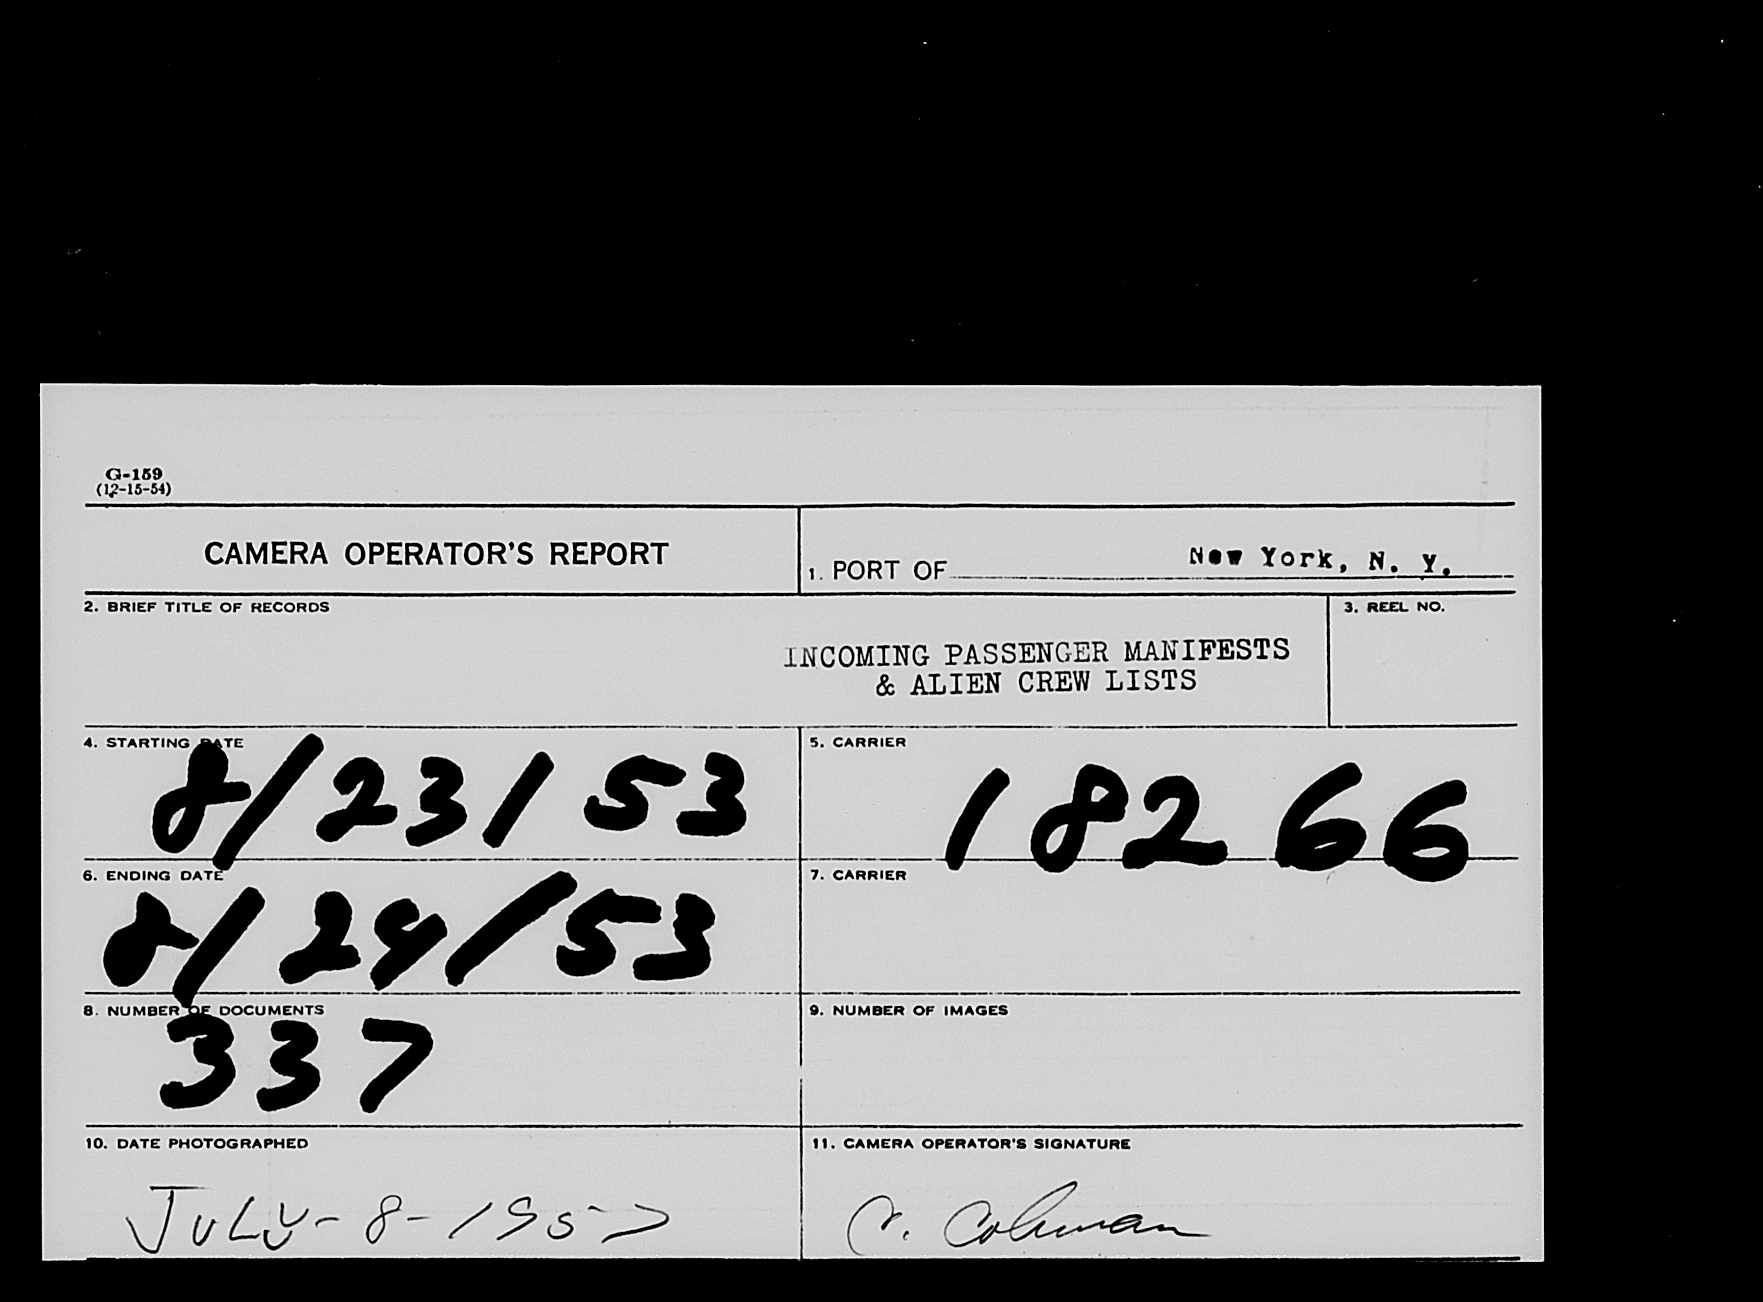 G-159
(12-15-54)
CAMERA OPERATOR'S REPORT
1. PORT OF New York, N. Y.
2. BRIEF TITLE OF RECORDS
3. REEL NO.
INCOMING PASSENGER MANIFESTS
& ALIEN CREW LISTS
4. STARTING DATE
8/23/53
5. CARRIER
18266
6. ENDING DATE
8/24/53
7. CARRIER
8. NUMBER OF DOCUMENTS
337
9. NUMBER OF IMAGES
10. DATE PHOTOGRAPHED
JULY-8-1957
11. CAMERA OPERATOR'S SIGNATURE